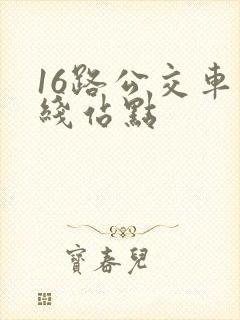 16路公交車
綫佔點
寶春兒